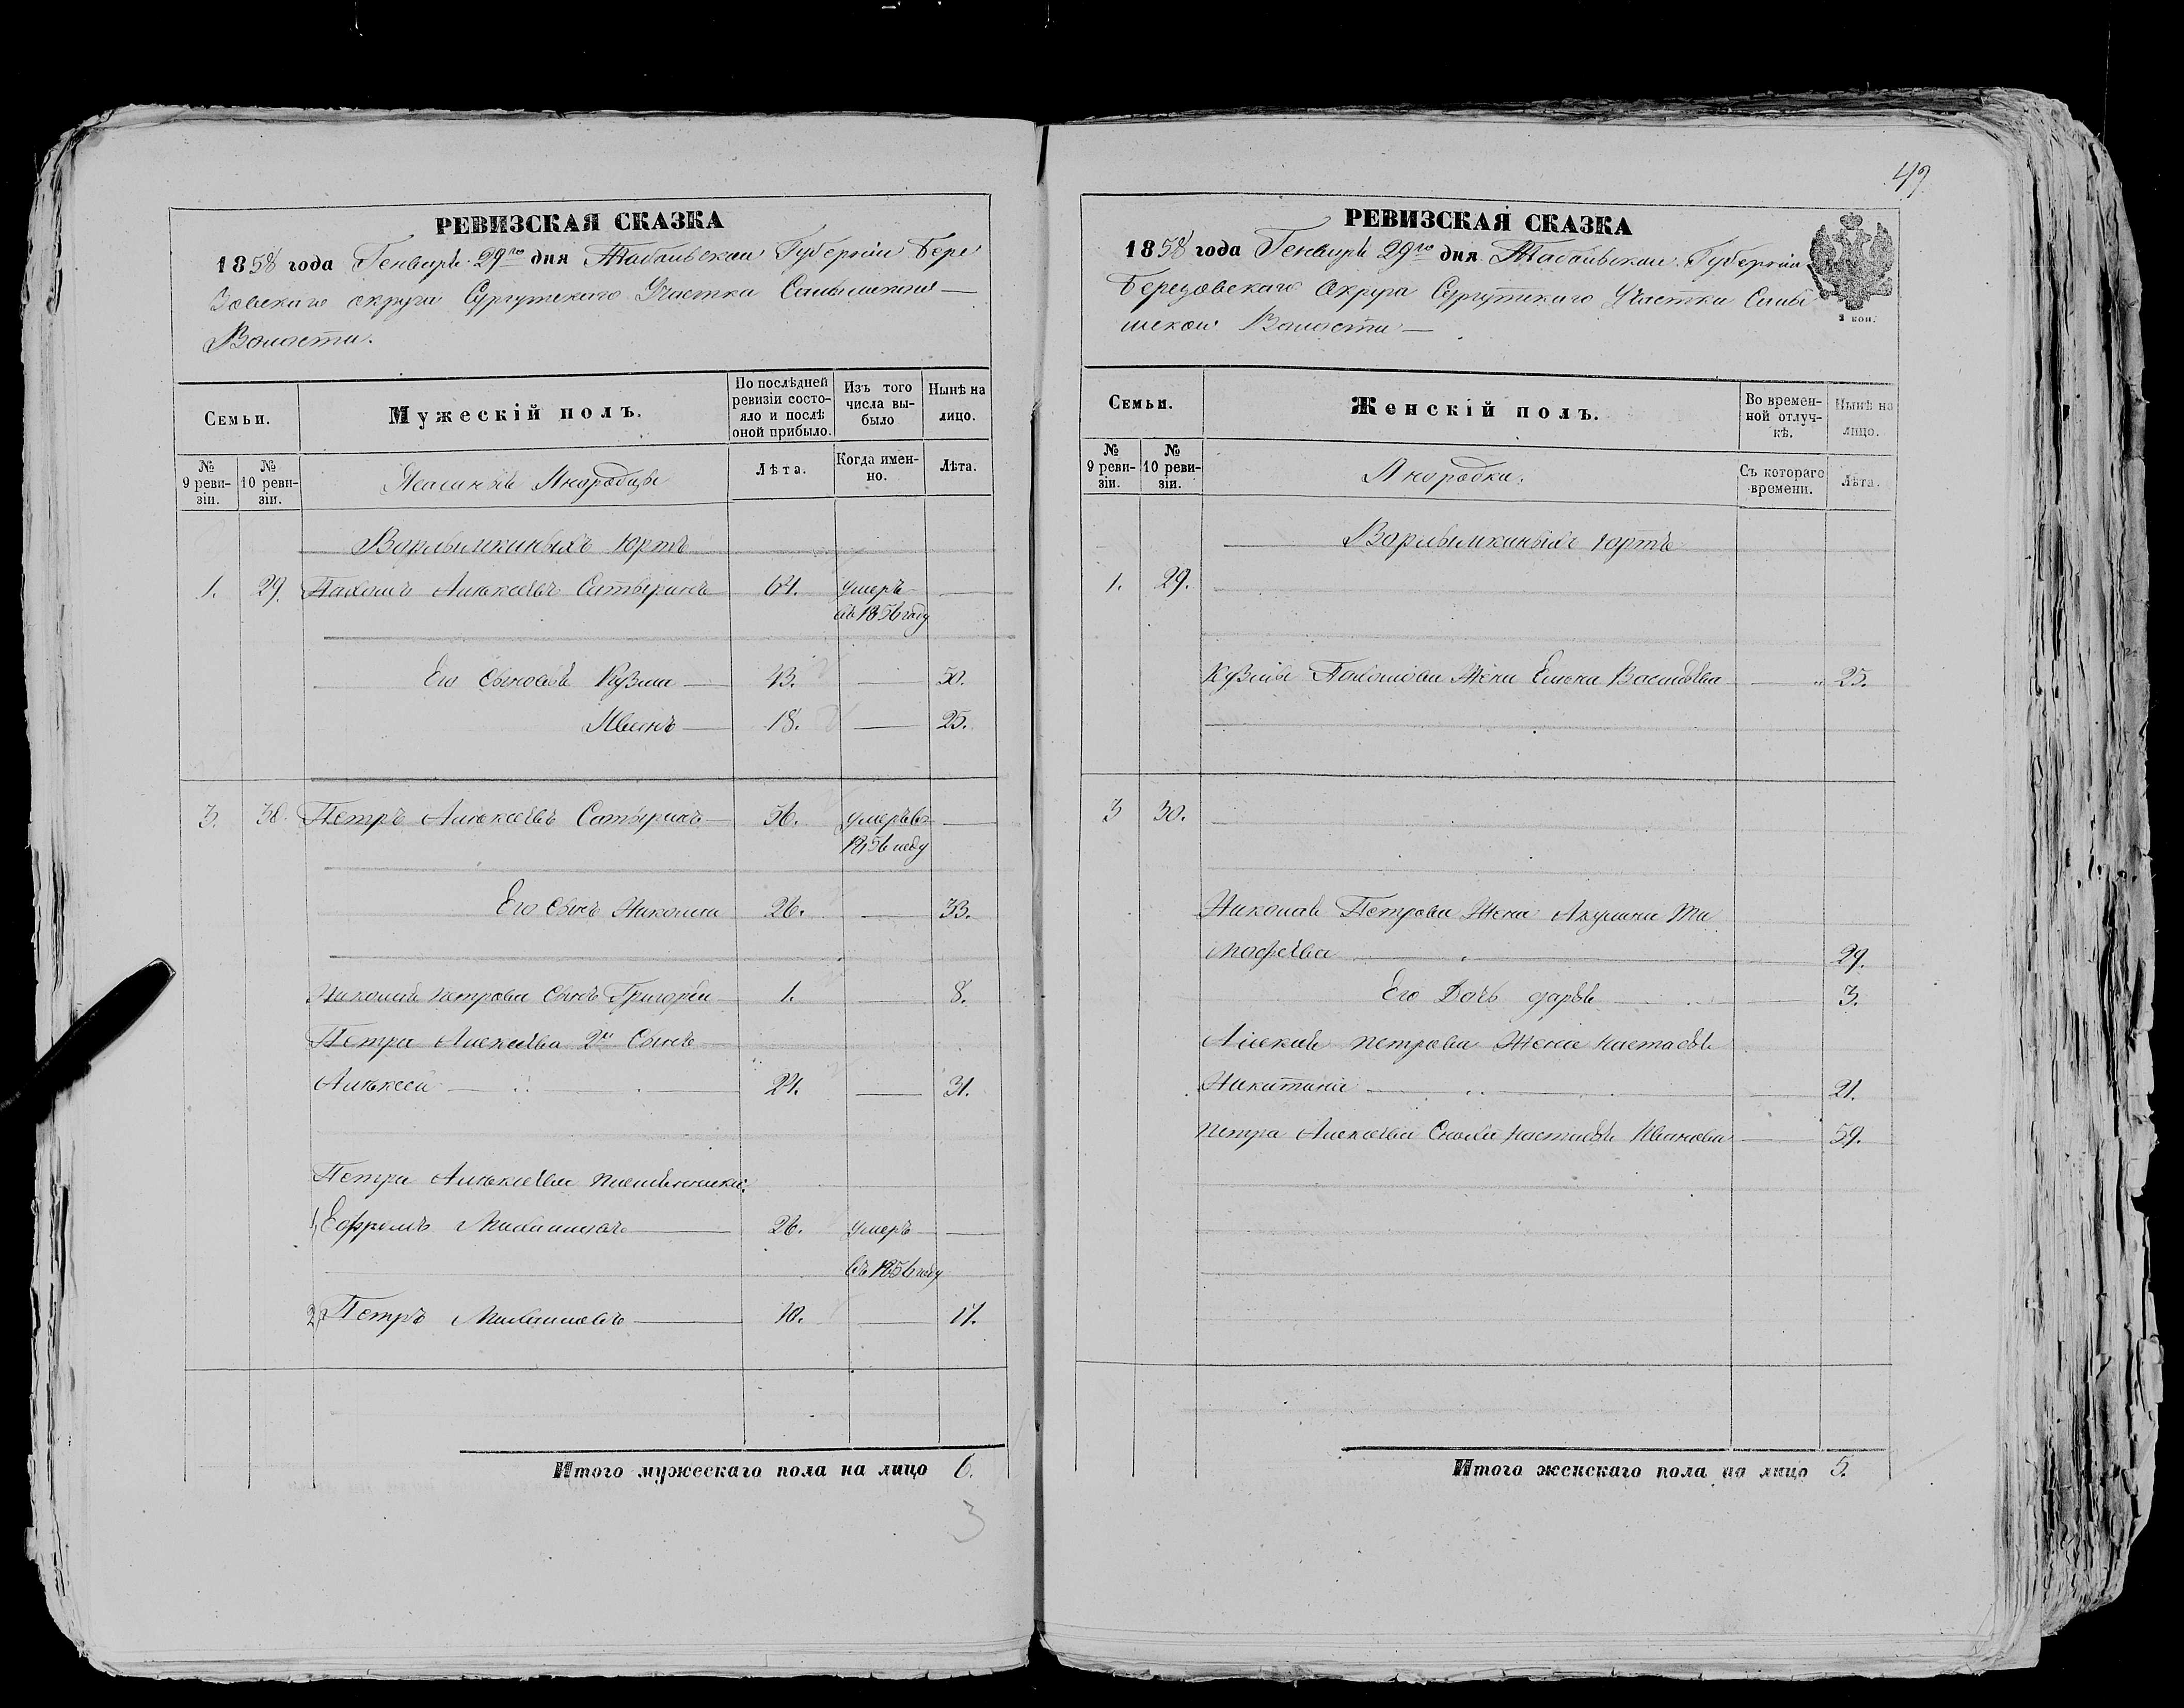 49
РЕВИЗСКАЯ СКАЗКА
1858 года Генваря 29го дня Тобольской Губернии Бере
зовскаго округа Сургутскаго Участка Салымской
Волости.
Семьи.
Мужескій полъ.
По послѣдней ревизіи состояло и послѣ оной прибыло.
Изъ того числа выбыло
Нынѣ на лицо.
№ 9 ревизіи.
№ 10 ревизіи.
Ясашные Инородцы
Лѣта.
Когда именно.
Лѣта.
Юртъ
1. 29. Пахомъ Алексѣевъ Сатыринъ 64. умеръ
въ 1856 году
Его Сыновья Кузма 43. 50.
18. 25.
3. 30. Петръ Алексѣевъ Сатыринъ 56. умеръ въ
1856 году
Его Сынъ Николай 26. 33.
Николая Петрова Сынъ Григорей 1. 8.
Петра Алексѣева 2й Сынъ
Алексей 24. 31.
Петра Алексѣева племянники:
1, Ефремъ 26. умеръ
въ 1856 году
2, Петръ 10. 17.
Итого мужескаго пола на лицо 6.
3
РЕВИЗСКАЯ СКАЗКА
1858 года Генваря 29го дня Тобольской Губернии
Березовскаго Округа Сургутскаго Участка Салы
мской Волости
2 коп.
Семьи.
Женскій полъ.
Во временной отлучкѣ.
Нынѣ на лицо.
№ 9 ревизіи.
№ 10 ревизіи.
Инородки.
Съ котораго времени.
Лѣта.
Юртъ
1. 29.
Кузмы Пахомова Жена Елена Васильева 25.
3 30.
Николая Петрова Жена Акулина Ти
мофеева 29.
Его Дочь Дарья 3.
Алексея Петрова Жена Настасья
Никитина 21.
Петра Алексѣева Сноха Настасья Иванова 59.
Итого женскаго пола на лицо 5.